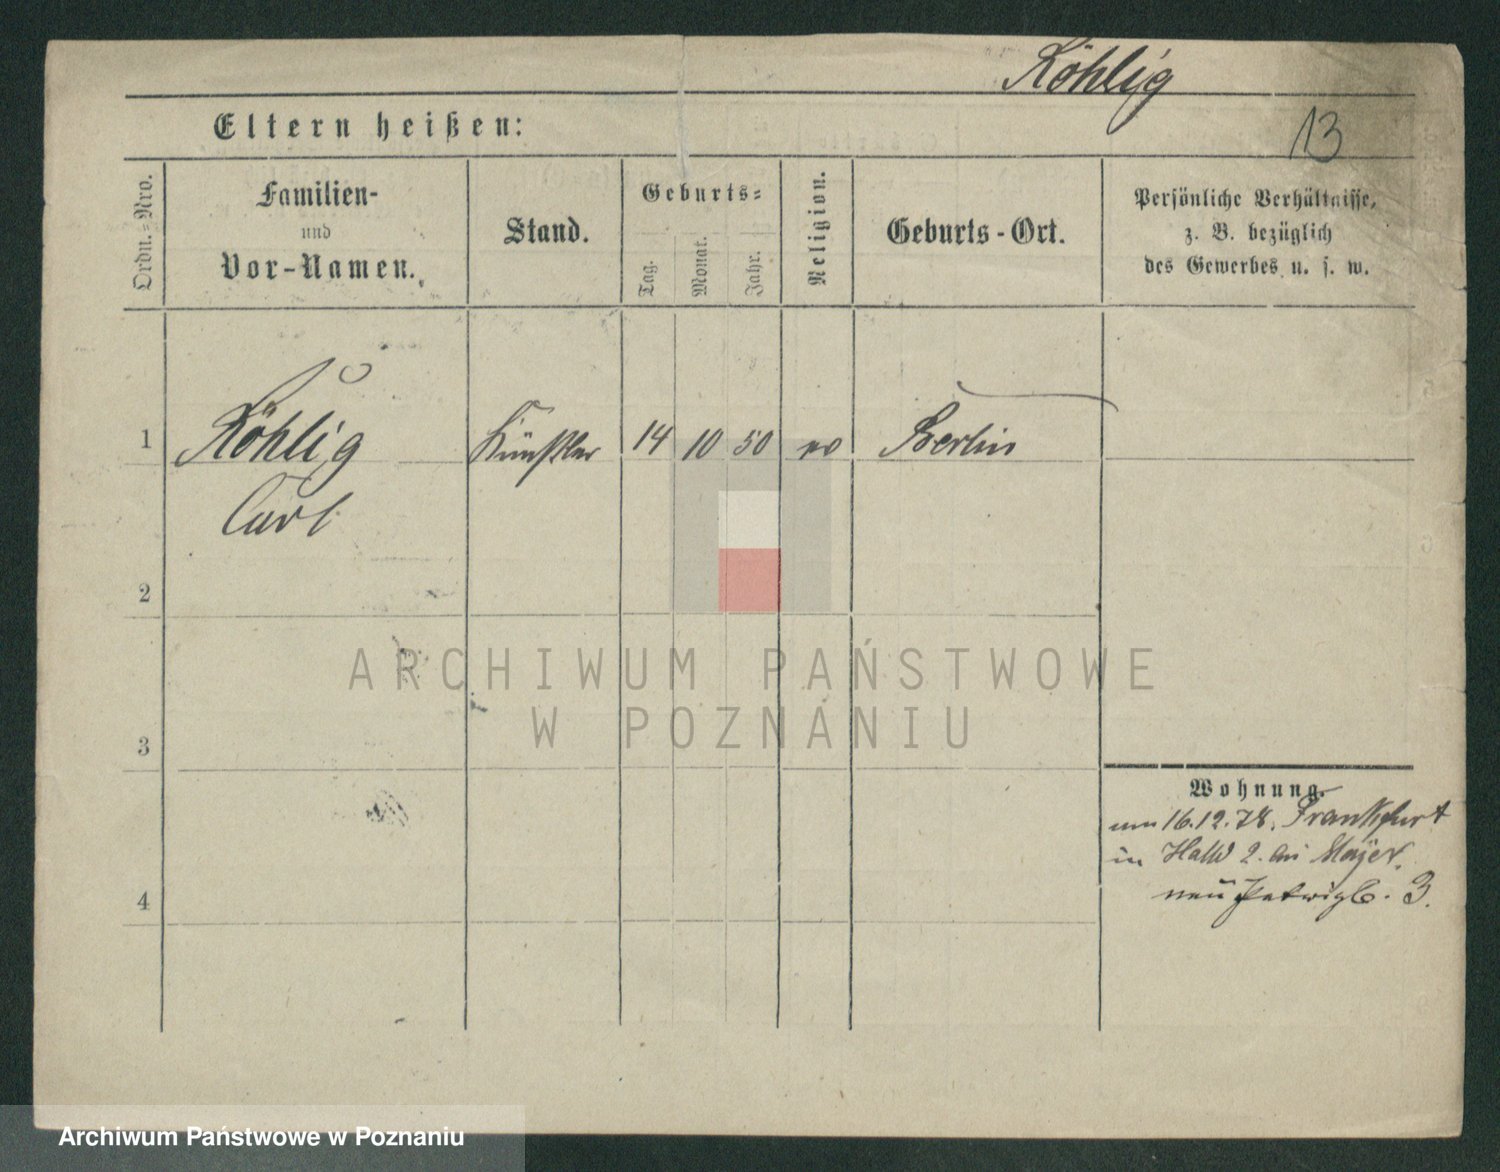 Köhlig
Eltern heißen:
13
Ordn.-Nro.
Familien-
und
Vor-Namen.
Stand.
Geburts-
Tag.
Monat.
Jahr.
Religion.
Geburts-Ort.
Persönliche Verhältnisse,
z. B. bezüglich
des Gewerbes u. s. w.
1 Köhlig Künstler 14 10 50 ev Berlin
Carl
2
3
4
Wohnung.
16.12.78. Frankfurt
in 2. Mayer.
neu 3.
ARCHIWUM PAŃSTWOWE
W POZNANIU
Archiwum Państwowe w Poznaniu